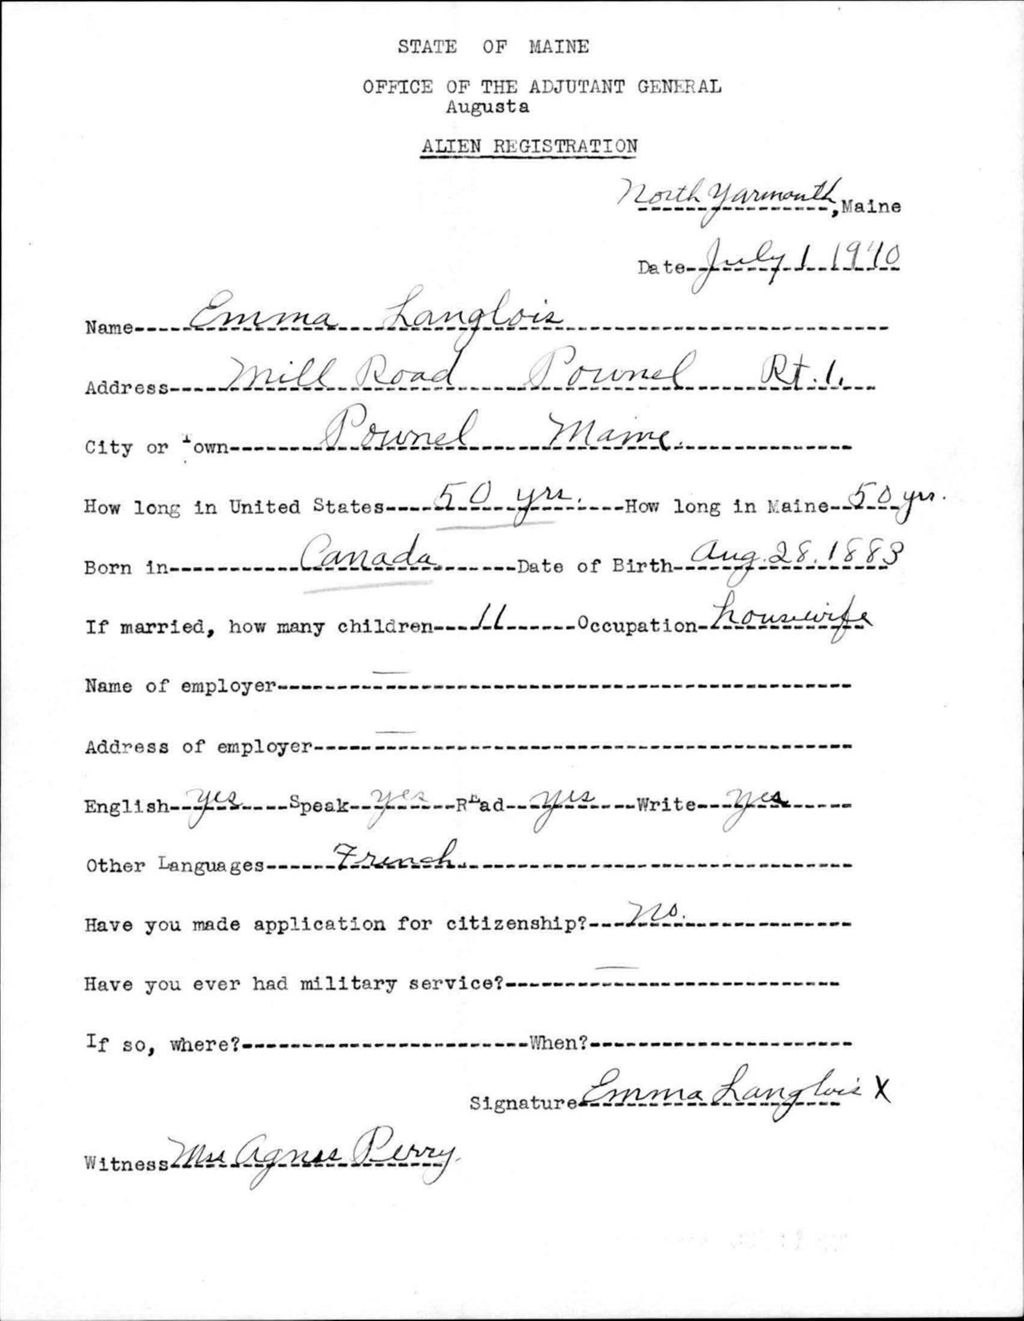 STATE OF MAINE
OFFICE OF THE ADJUTANT GENERAL
Augusta
ALIEN REGISTRATION
North Yarmouth, Maine
Date July 1 1940
Name Emma Langlois
Address Mill Road Pownel Rt. 1.
City or Town Pownel Maine.
How long in United States 50 yrs. How long in Maine 50 yrs.
Born in Canada. Date of Birth Aug. 28. 1883
If married, how many children 11 Occupation housewife
Name of employer —
Address of employer —
English yes Speak yes Read yes Write yes
Other Languages French.
Have you made application for citizenship? No.
Have you ever had military service? —
If so, where? When?
Signature Emma Langlois X
Witness Mrs Agnes Perry.